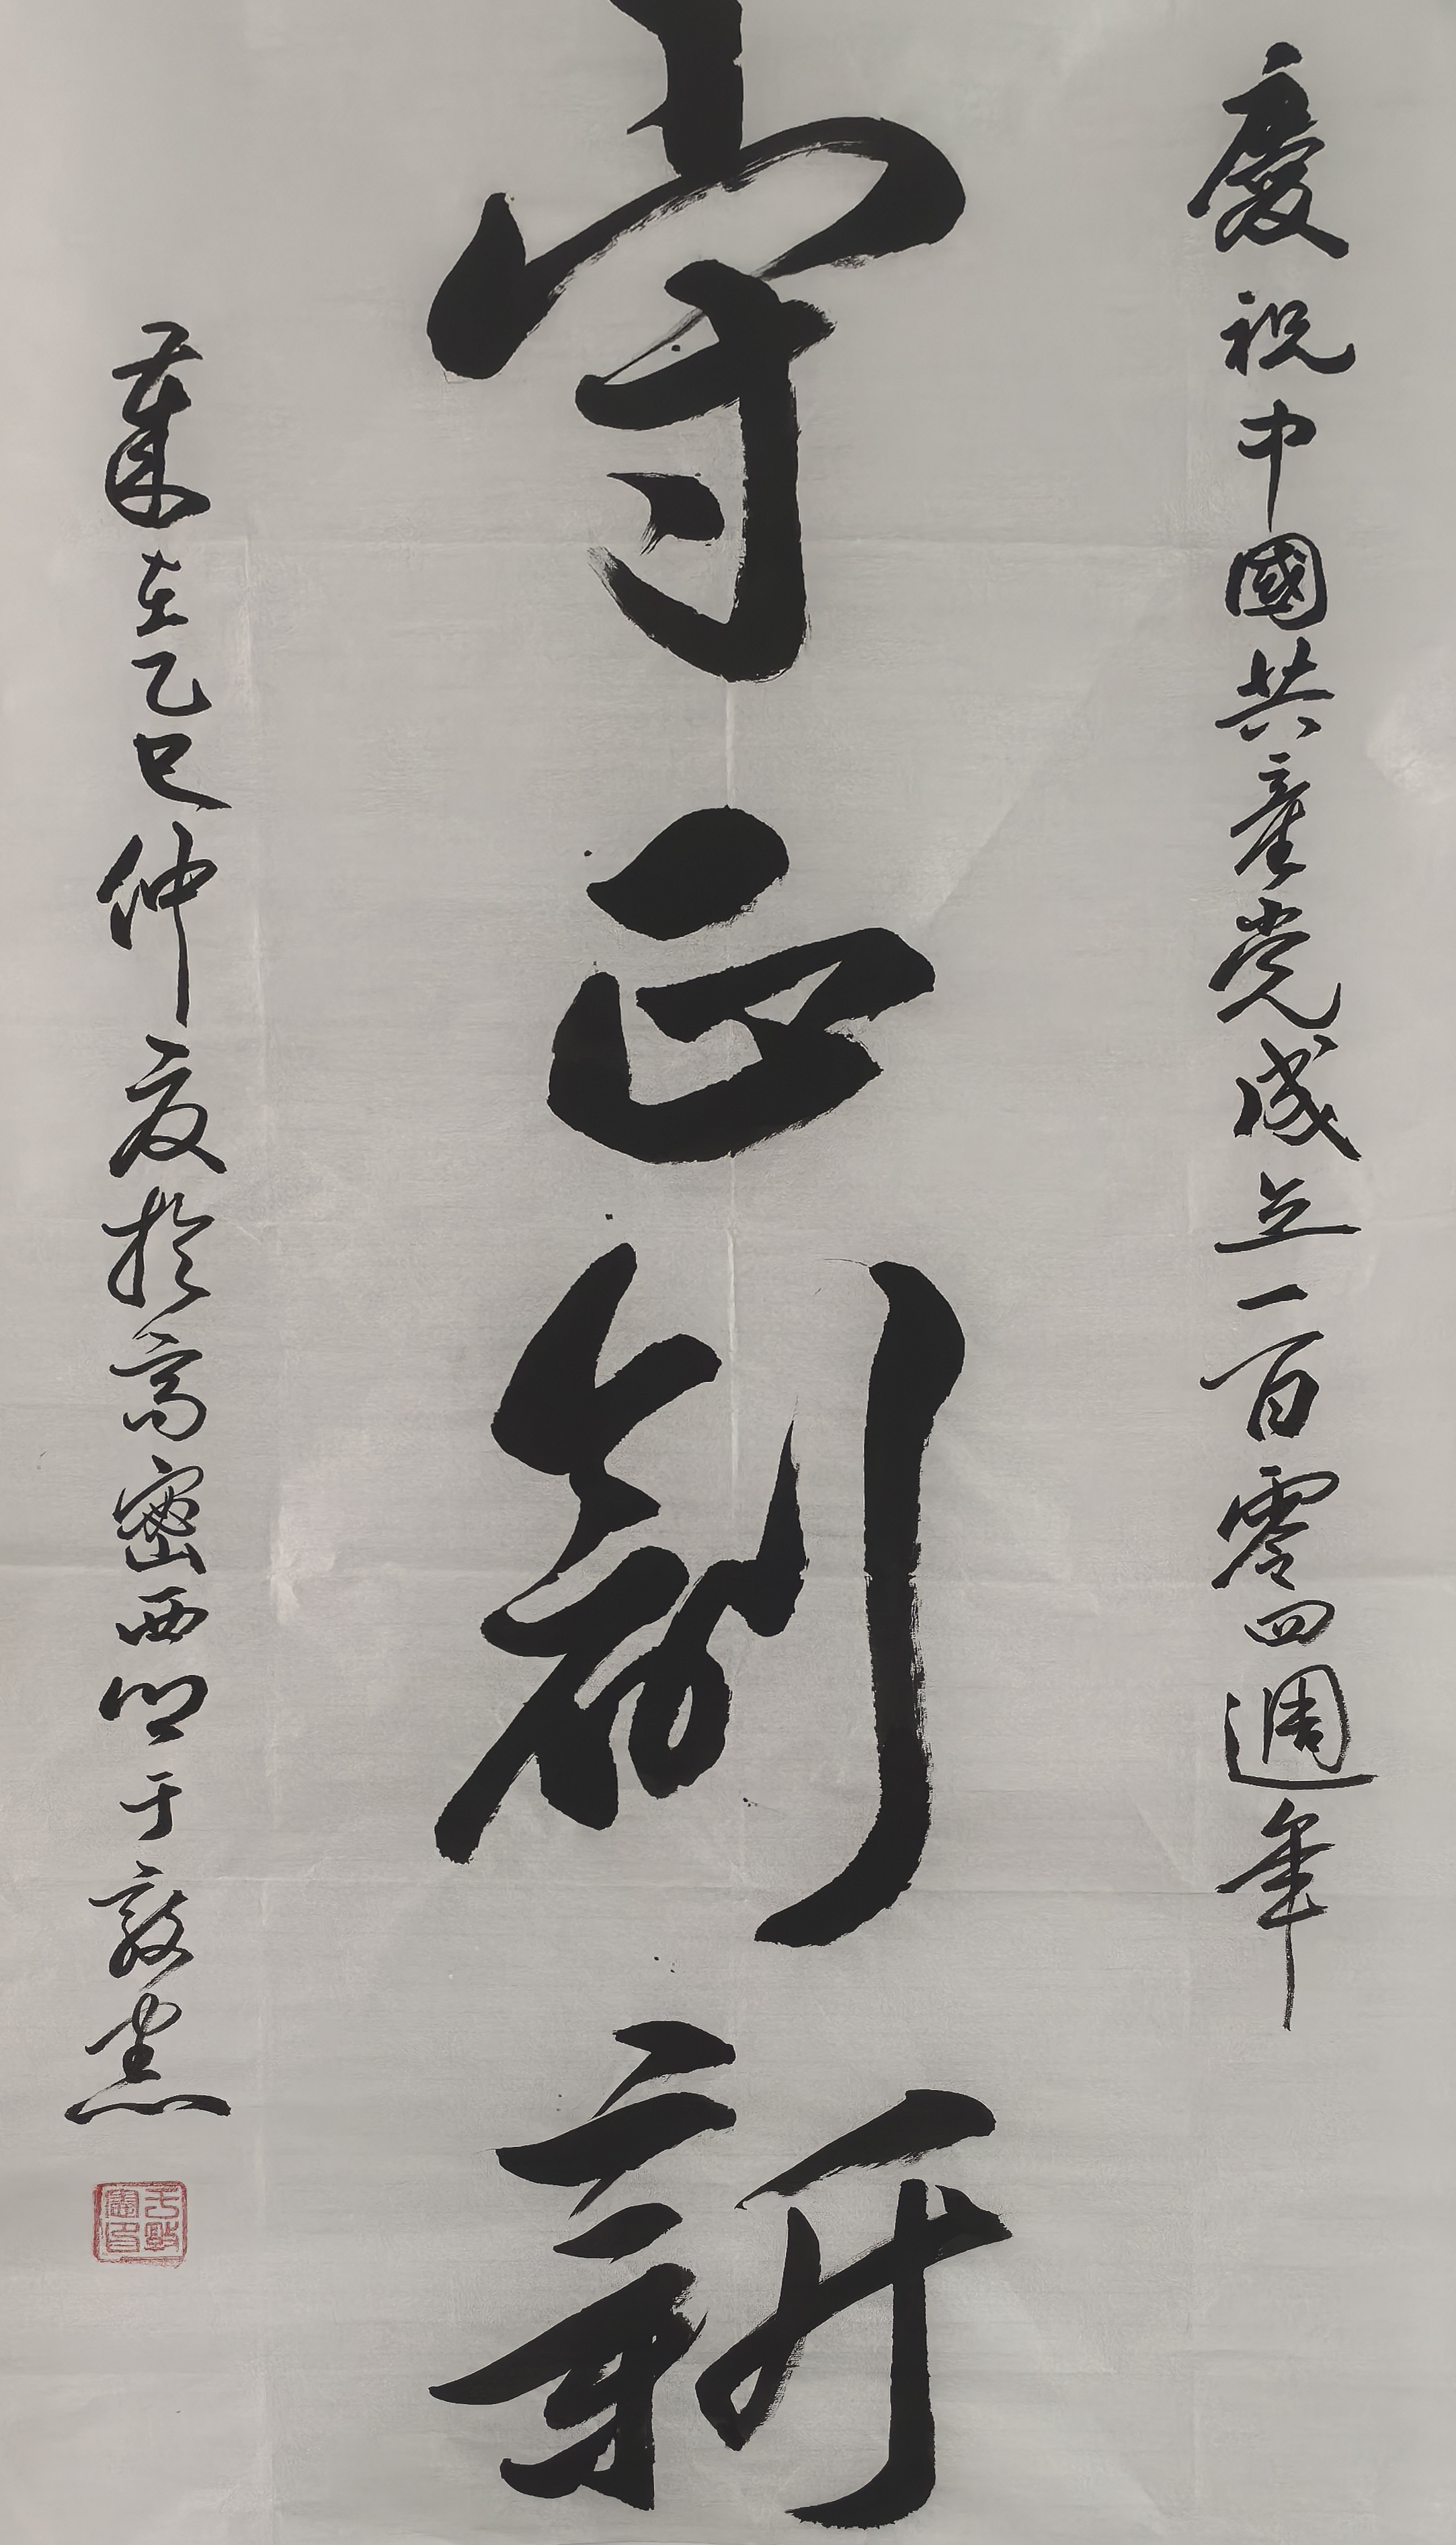 慶祝中國共產党成立一百零四週年
守正創新
歲在乙巳仲夏於高密西 于敦憲
于敦憲印